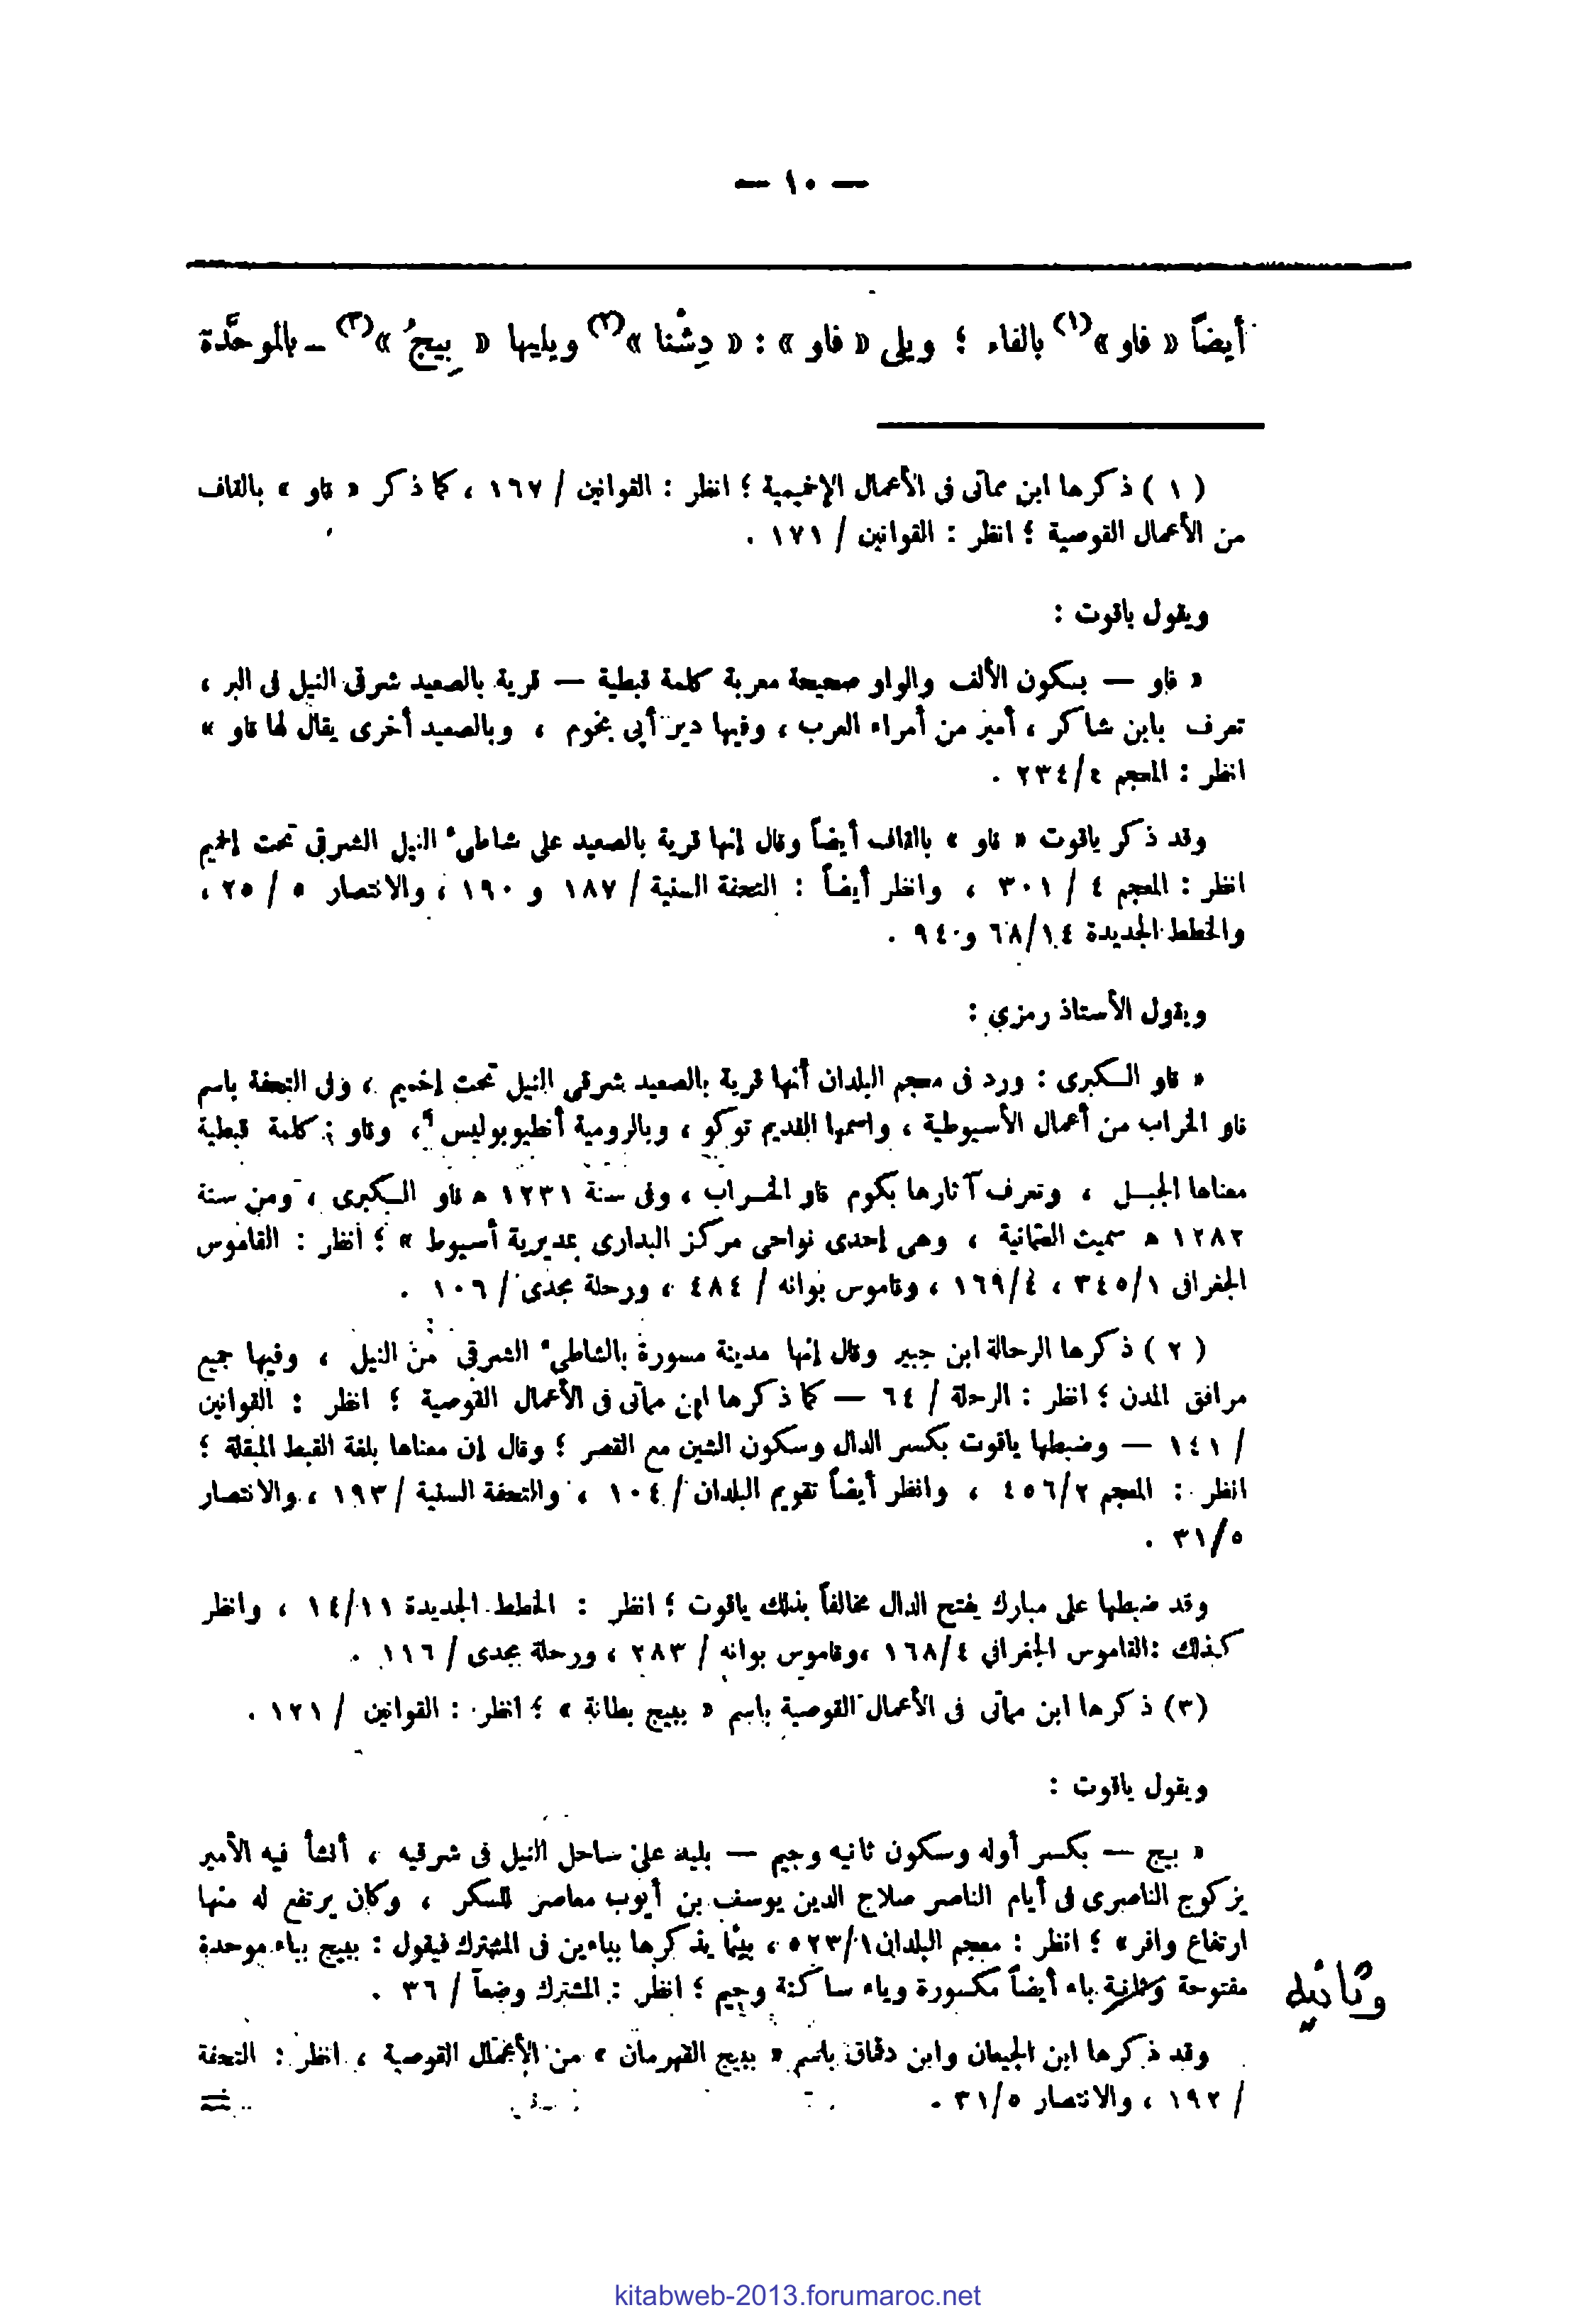 — ١٠ —
أيضاً « فاو »(١) بالفاء ؛ ويلى « فاو » : « دِشْنا »(٢) ويليها « بِيجُ »(٣) ــ بالموحَّدة
( ١ ) ذكرها ابن مماتى فى الأعمال الإخميمية ؛ انظر : القوانين / ١٦٧ ، كما ذكر « قاو » بالقاف
من الأعمال القوصية ؛ انظر : القوانين / ١٧١ .
ويقول ياقوت :
« فاو — بسكون الألف والواو صحيحة معربة كلمة قبطية — قرية بالصعيد شرقى النيل فى البر ،
تعرف بابن شاكر ، أمير من أمراء العرب ، وفيها دير أبى بخوم ، وبالصعيد أخرى يقال لها قاو »
انظر : المعجم ٤/٢٣٤ .
وقد ذكر ياقوت « قاو » بالقاف أيضاً وقال إنها قرية بالصعيد على شاطىء النيل الشرقى تحت إخميم
انظر : المعجم ٤ / ٣٠١ ، وانظر أيضاً : التحفة السنية / ١٨٧ و ١٩٠ ، والانتصار ٥ / ٢٥ ،
والخطط الجديدة ١٤/٦٨ و ٩٤ .
ويقول الأستاذ رمزي :
« قاو الكبرى : ورد فى معجم البلدان أنها قرية بالصعيد شرقى النيل تحت إخميم ، وفى التحفة باسم
قاو الخراب من أعمال الأسيوطية ، واسمها القديم توكو ، وبالرومية أنطيوبوليس ، وقاو : كلمة قبطية
معناها الجبل ، وتعرف آثارها بكوم قاو الخراب ، وفى سنة ١٢٣١ ه قاو الكبرى ، ومن سنة
١٢٨٢ ه سميت العثمانية ، وهى إحدى نواحى مركز البدارى بمديرية أسيوط » ؛ انظر : القاموس
الجغرافى ٣٤٥/١ ، ١٦٩/٤ ، وقاموس بوانه / ٤٨٤ ، ورحلة مجدى / ١٠٦ .
( ٢ ) ذكرها الرحالة ابن جبير وقال إنها مدينة مسورة بالشاطىء الشرقى من النيل ، وفيها جميع
مرافق المدن ؛ انظر : الرحلة / ٦٤ — كما ذكرها ابن مماتى فى الأعمال القوصية ؛ انظر : القوانين
/ ١٤١ — وضبطها ياقوت بكسر الدال وسكون الشين مع القصر ؛ وقال إن معناها بلغة القبط المبقلة ؛
انظر : المعجم ٤٥٦/٢ ، وانظر أيضاً تقويم البلدان / ١٠٤ ، والتحفة السنية / ١٩٣ ، والانتصار
٣١/٥ .
وقد ضبطها على مبارك بفتح الدال مخالفاً بذلك ياقوت ؛ انظر : الخطط الجديدة ١٤/١١ ، وانظر
كذلك : القاموس الجغرافي ١٦٨/٤ ، وقاموس بوانه / ٢٨٣ ، ورحلة مجدى / ١١٦ .
(٣) ذكرها ابن مماتى فى الأعمال القوصية باسم « ببيج بطانة » ؛ انظر : القوانين / ١٢١ .
ويقول ياقوت :
« بيج — بكسر أوله وسكون ثانيه وجيم — بليد على ساحل النيل فى شرقيه ، أنشأ فيه الأمير
يزكوج الناصرى فى أيام الناصر صلاح الدين يوسف بن أيوب معاصر للسكر ، وكان يرتفع له منها
ارتفاع وافر » ؛ انظر : معجم البلدان ٥٢٣/١ ، بينما يذكرها بباءين فى المشترك فيقول : ببيج بباء موحدة
مفتوحة وثانية باء أيضاً مكسورة وياء ساكنة وجيم ؛ انظر : المشترك وضعاً / ٣٦ .
وثانيه
وقد ذكرها ابن الجيعان وابن دقماق باسم « ببيج القهرمان » من الأعمال القوصية ، انظر : التحفة
/ ١٩٢ ، والانتصار ٣١/٥ . =
kitabweb-2013.forumaroc.net